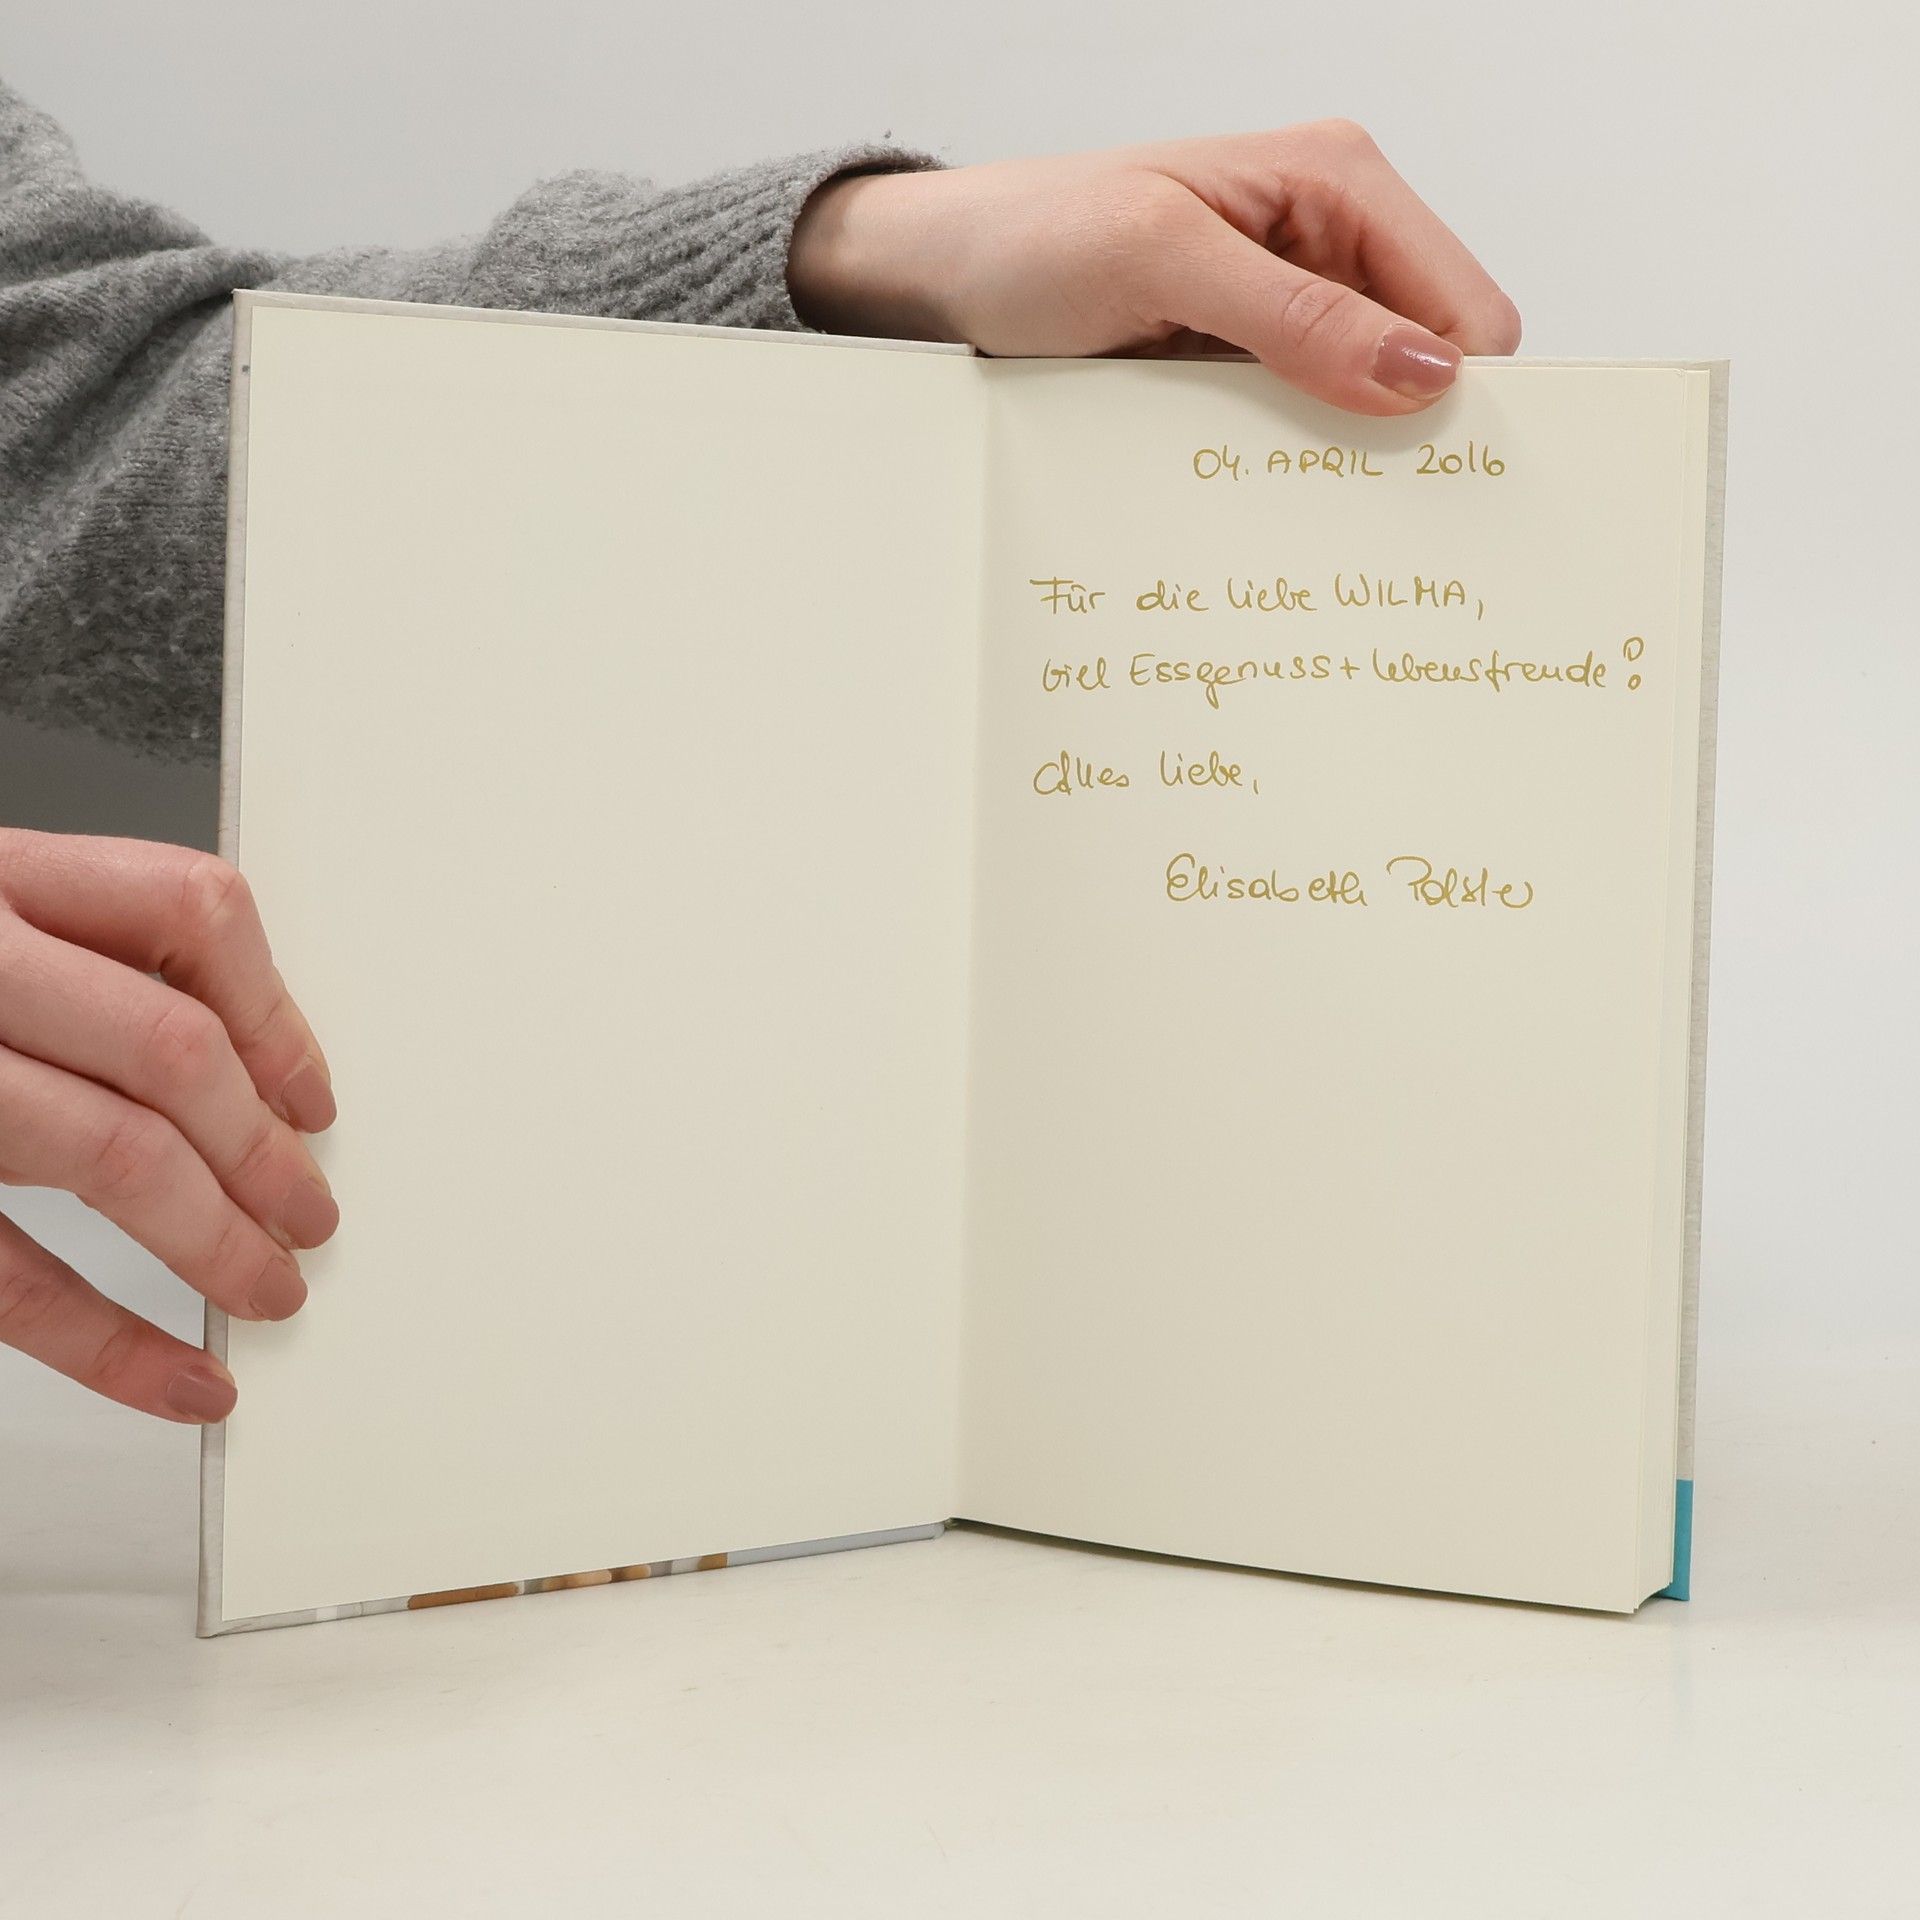 04. APRIL 2016
Für die liebe WILMA,
viel Essgenuss + Lebensfreude!
Alles Liebe,
Elisabeth Polster